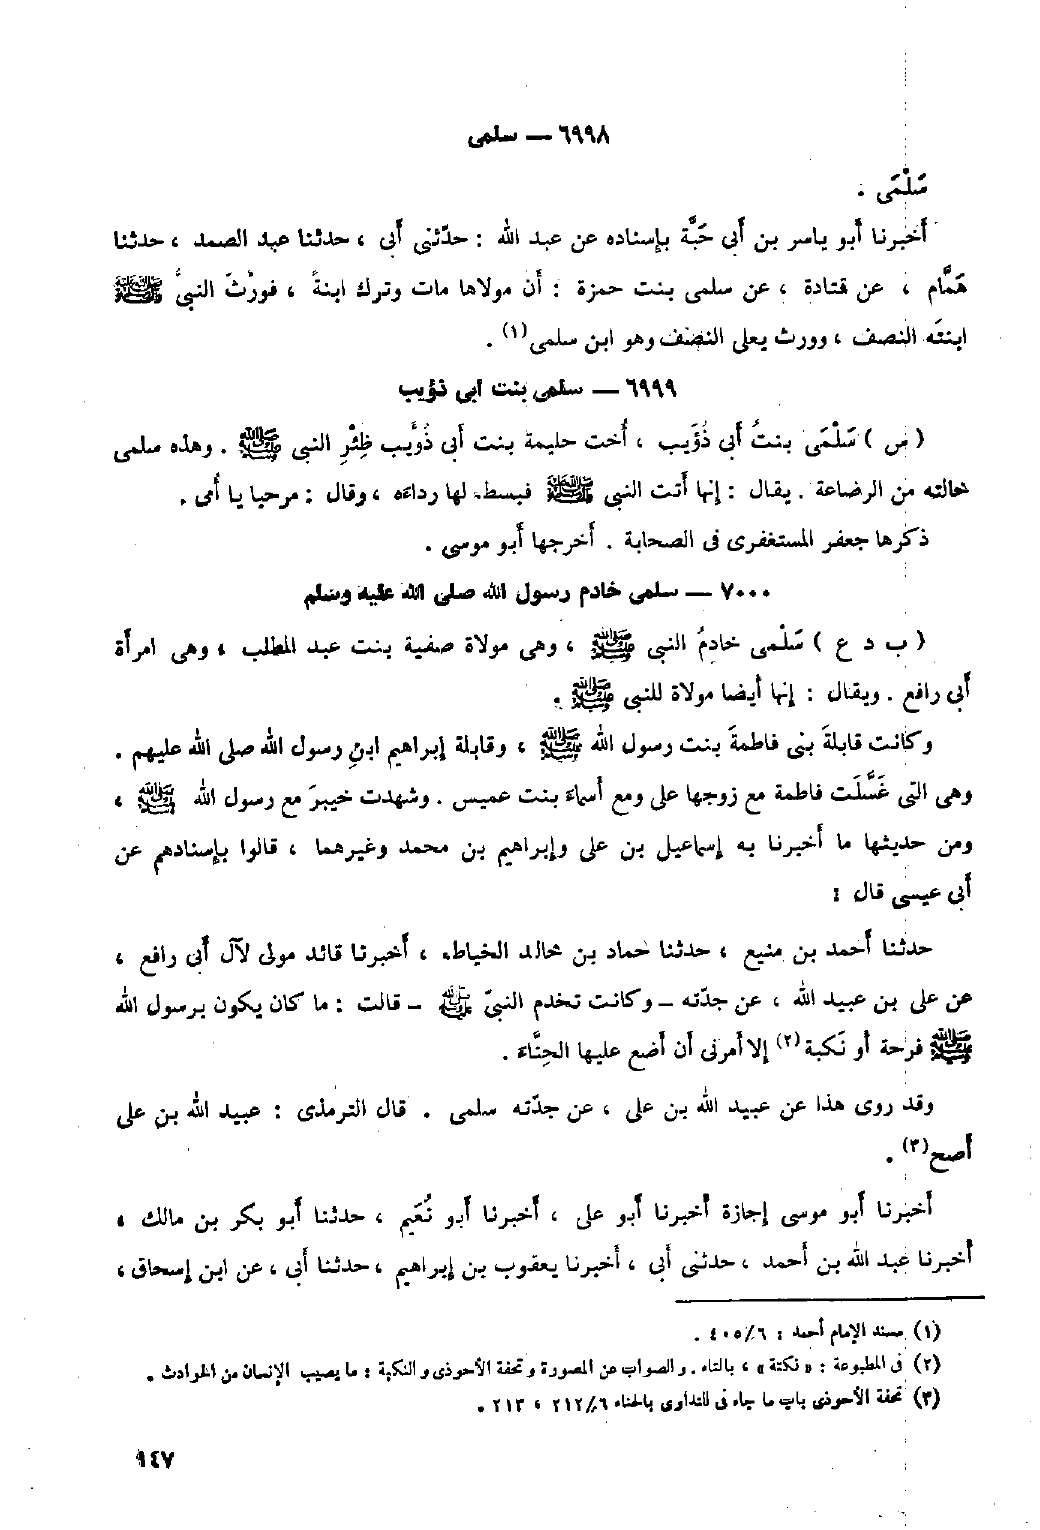 ٦٩٩٨ — سلمى
سَلْمَى .
أخبرنا أبو ياسر بن أبى حَبَّة بإسناده عن عبد الله : حدّثنى أبى ، حدثنا عبد الصمد ، حدثنا
هَمَّام ، عن قتادة ، عن سلمى بنت حمزة : أن مولاها مات وترك ابنةً ، فورّثَ النبىُّ ﷺ
ابنتَه النصف ، وورث يعلى النصف وهو ابن سلمى(١) .
٦٩٩٩ — سلمى بنت أبى ذؤيب
( س ) سَلْمَى بنتُ أبى ذُؤَيب ، أُخت حليمة بنت أبى ذُؤَيب ظِئْرِ النبى ﷺ . وهذه سلمى
خالته من الرضاعة . يقال : إنها أتت النبى ﷺ فبسط لها رداءه ، وقال : مرحبا يا أُمى .
ذكرها جعفر المستغفرى فى الصحابة . أخرجها أبو موسى .
٧٠٠٠ — سلمى خادم رسول الله صلى الله عليه وسلم
( ب د ع ) سَلْمى خادمُ النبى ﷺ ، وهى مولاة صفية بنت عبد المطلب ، وهى امرأة
أبى رافع . ويقال : إنها أيضا مولاة للنبى ﷺ .
وكانت قابلةَ بنى فاطمةَ بنت رسول الله ﷺ ، وقابلة إبراهيم ابنِ رسول الله صلى الله عليهم .
وهى التى غَسَّلَت فاطمة مع زوجها على ومع أسماءَ بنت عميس . وشهدت خيبرَ مع رسول الله ﷺ ،
ومن حديثها ما أخبرنا به إسماعيل بن على وإبراهيم بن محمد وغيرهما ، قالوا بإسنادهم عن
أبى عيسى قال :
حدثنا أحمد بن منيع ، حدثنا حماد بن خالد الخياط ، أخبرنا قائد مولى لآل أبى رافع ،
عن على بن عبيد الله ، عن جدّته ــ وكانت تخدم النبىّ ﷺ ــ قالت : ما كان يكون برسول الله
ﷺ قرحة أو نَكبة(٢) إلا أمرنى أن أضع عليها الحِنَّاءَ .
وقد روى هذا عن عبيد الله بن على ، عن جدّته سلمى . قال الترمذى : عبيد الله بن على
أصح(٣) .
أخبرنا أبو موسى إجازة أخبرنا أبو على ، أخبرنا أبو نُعَيم ، حدثنا أبو بكر بن مالك ،
أخبرنا عبد الله بن أحمد ، حدثنى أبى ، أخبرنا يعقوب بن إبراهيم ، حدثنا أبى ، عن ابن إسحاق ،
(١) مسند الإمام أحمد : ٤٠٥/٦ .
(٢) فى المطبوعة : « نكتة » ، بالتاء . والصواب عن المصورة وتحفة الأحوذى والنكبة : ما يصيب الإنسان من الحوادث .
(٣) تحفة الأحوذى باب ما جاء فى التداوى بالحناء ٢١٢/٦ ، ٢١٣ .
٩٤٧